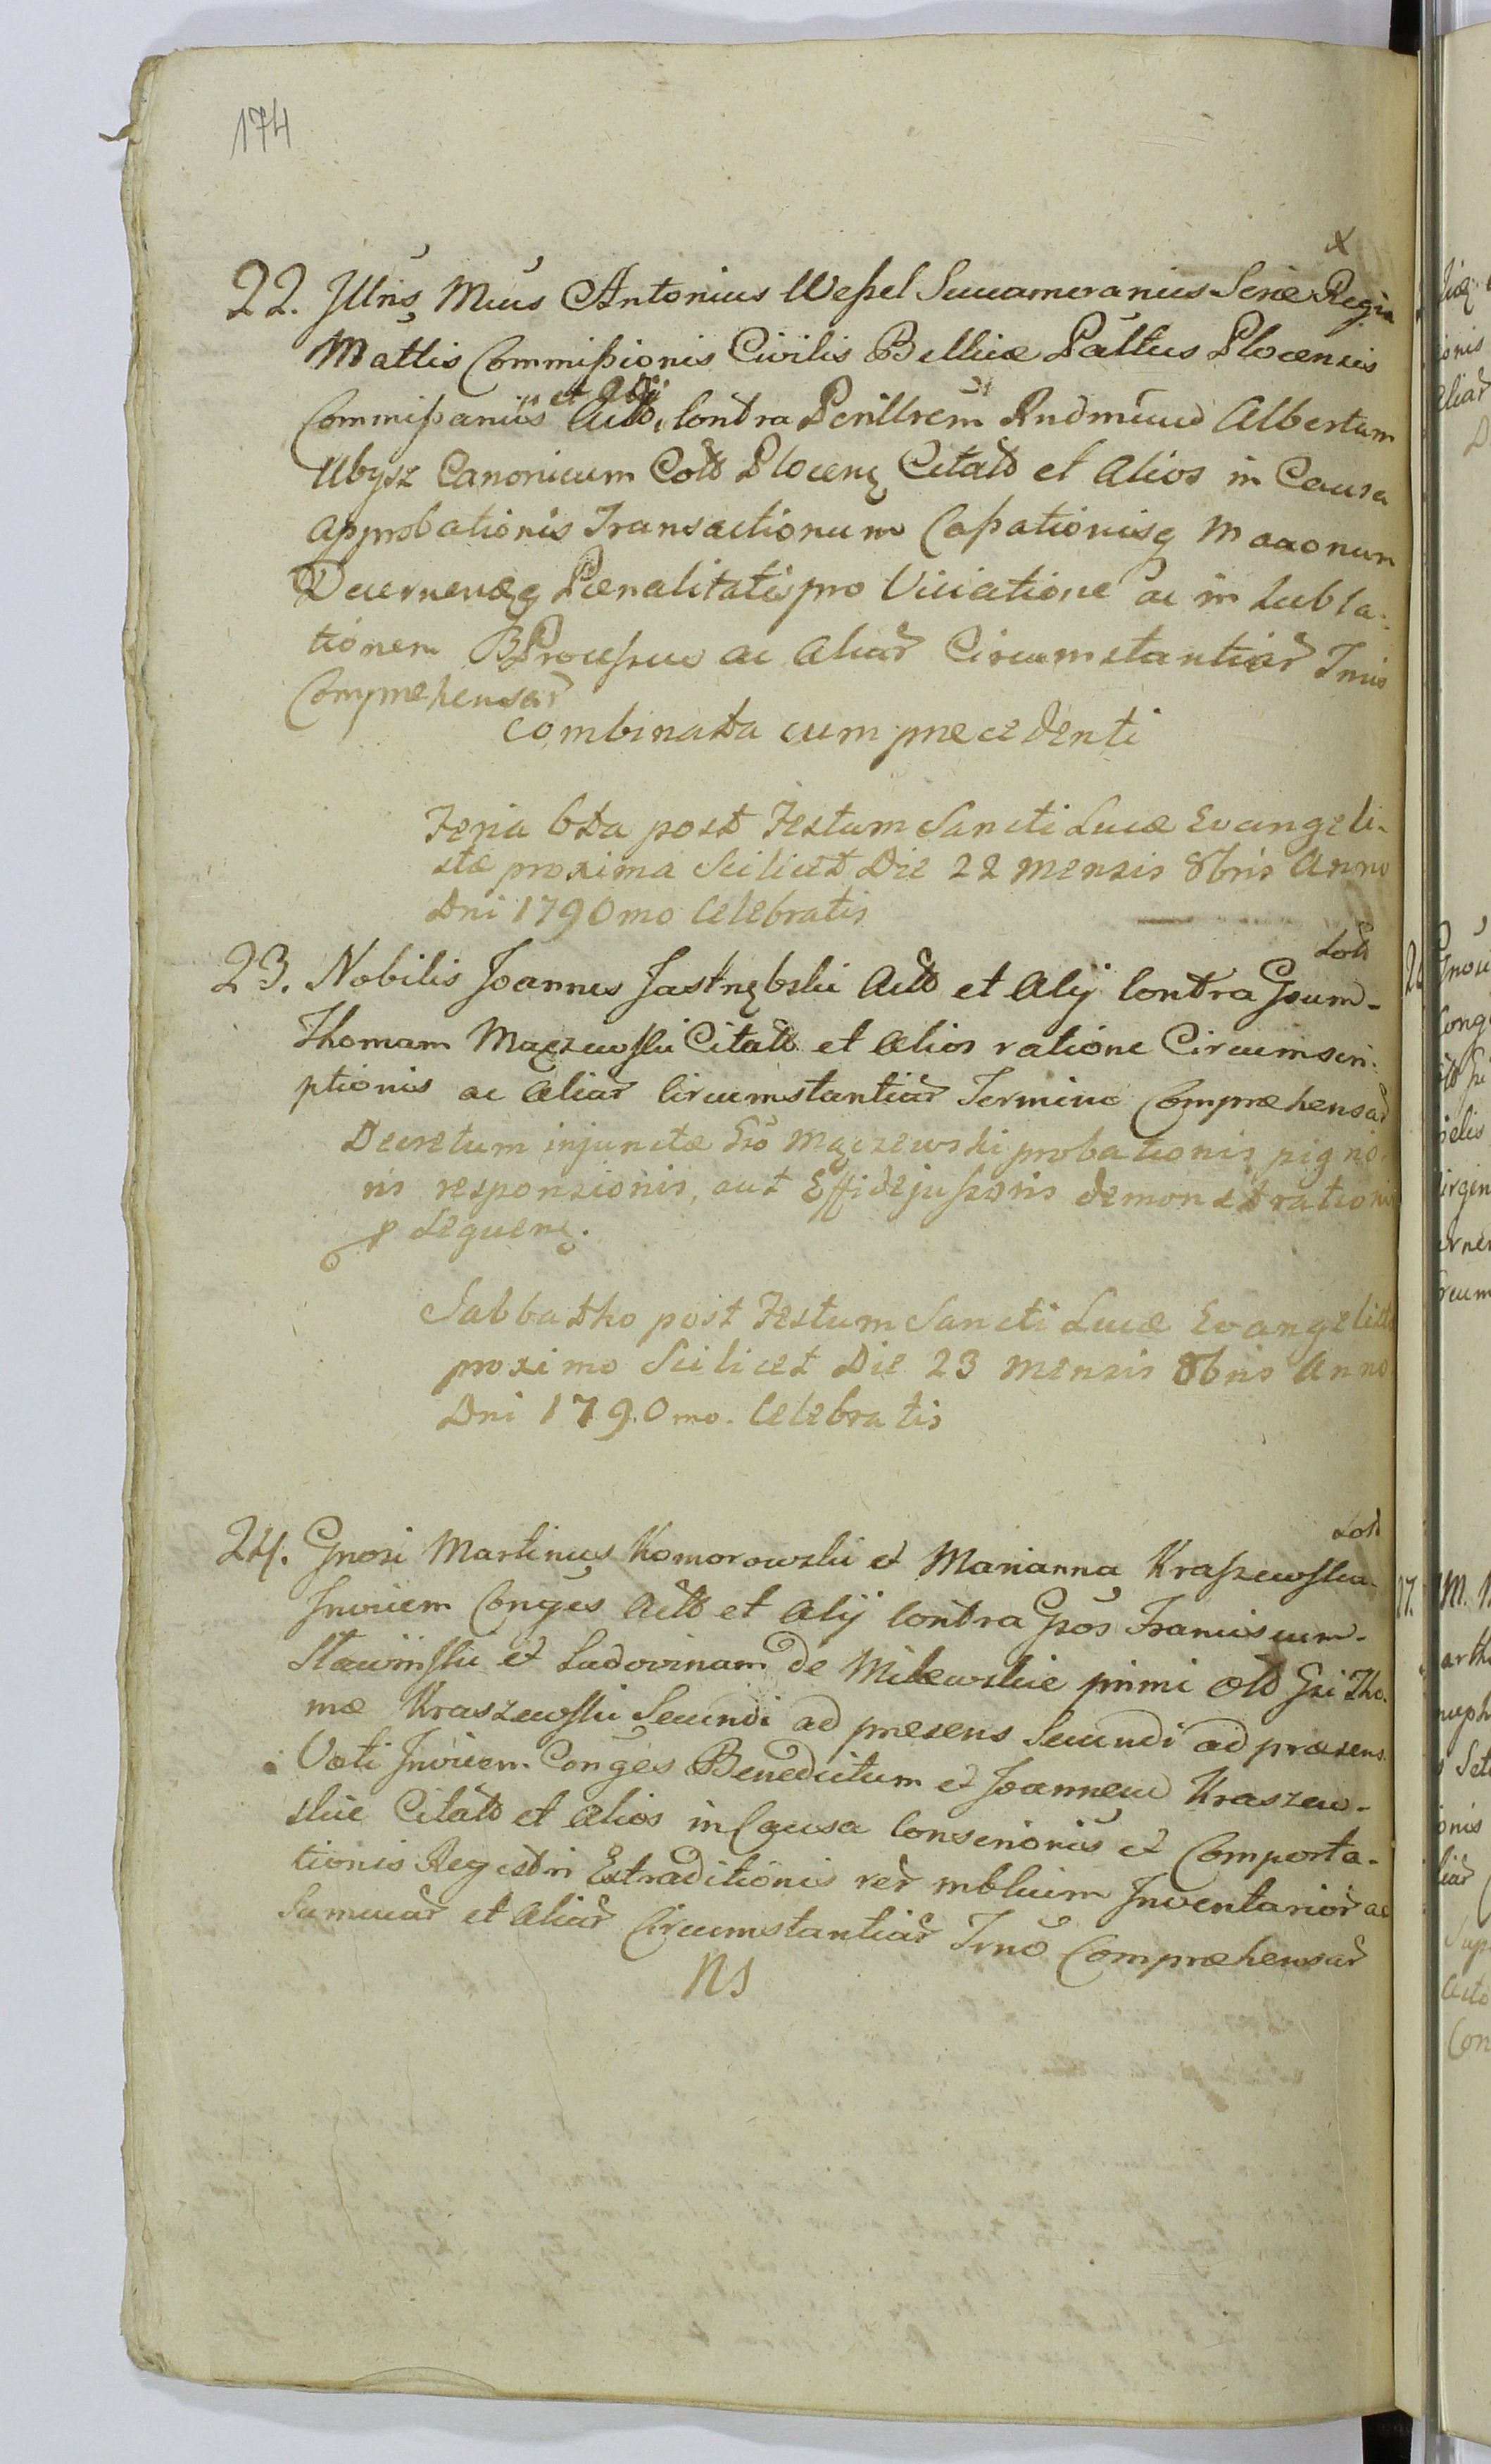 174
x
22. Jllris Mcus Antonius Weßel Succameranius Seriæ Regia
Mattis Commißionis Civilis Bellicæ Pałłtus Plocensis
et Alij
Commißarius Actt, Contra Perillrem Rndmum Albertum
Ubysz Canonicum Cott Plocenę Citatt et alios in Causa
approbationis Transactionum Caßationisq Maaonum
Decernenæq Pœnalitatis pro Viciatione ac in Subla-
tionem Processus ac aliar Circumstantiar Tnio
Comprehensar
combinata cum precedenti
Feria 6ta post Festum Sancti Lucæ Evangeli-
stæ proxima Scilicet Die 22 mensis 8bris Anno
Dni 1790mo Celebratis
Sott
23. Nobilis Joannes Jastrzębski Actt et Alij Contra Gsum
Thomam Mączewski Citatt et alios ratione Circumscri-
ptionis ac aliar Circumstantiar Termino Compræhensar
Decretum injunctæ Gso Mączewski probationis pigno-
ris responsionis, aut Effidejussoris demonstrationis
p Sequenę.
Sabbatho post Festum Sancti Lucæ Evangelistæ
proximo Scilicet Die 23 mensis 8bris Anno
Dni 1790mo. Celebratis
Sott
24. Gnosi Martinus Komorowski et Marianna Kraszewska
Jnvicem Conges Actt et Alij Contra Gsos Franciscum
Sławiński et Ludovinam de Milewskie primi olt Gsi Tho-
mæ Kraszewski Secundi ad presens Secundi ad præsens
Voti Jnvicem Conges Benedictum et Joannem Kraszew-
skie Citatt et alios in Causa Conscrionis et Comporta-
tionis Regestri Extraditionis rer mblium Jnventarior ac
Sumar et aliar Circumstantiar Trno Compræhensar
NS